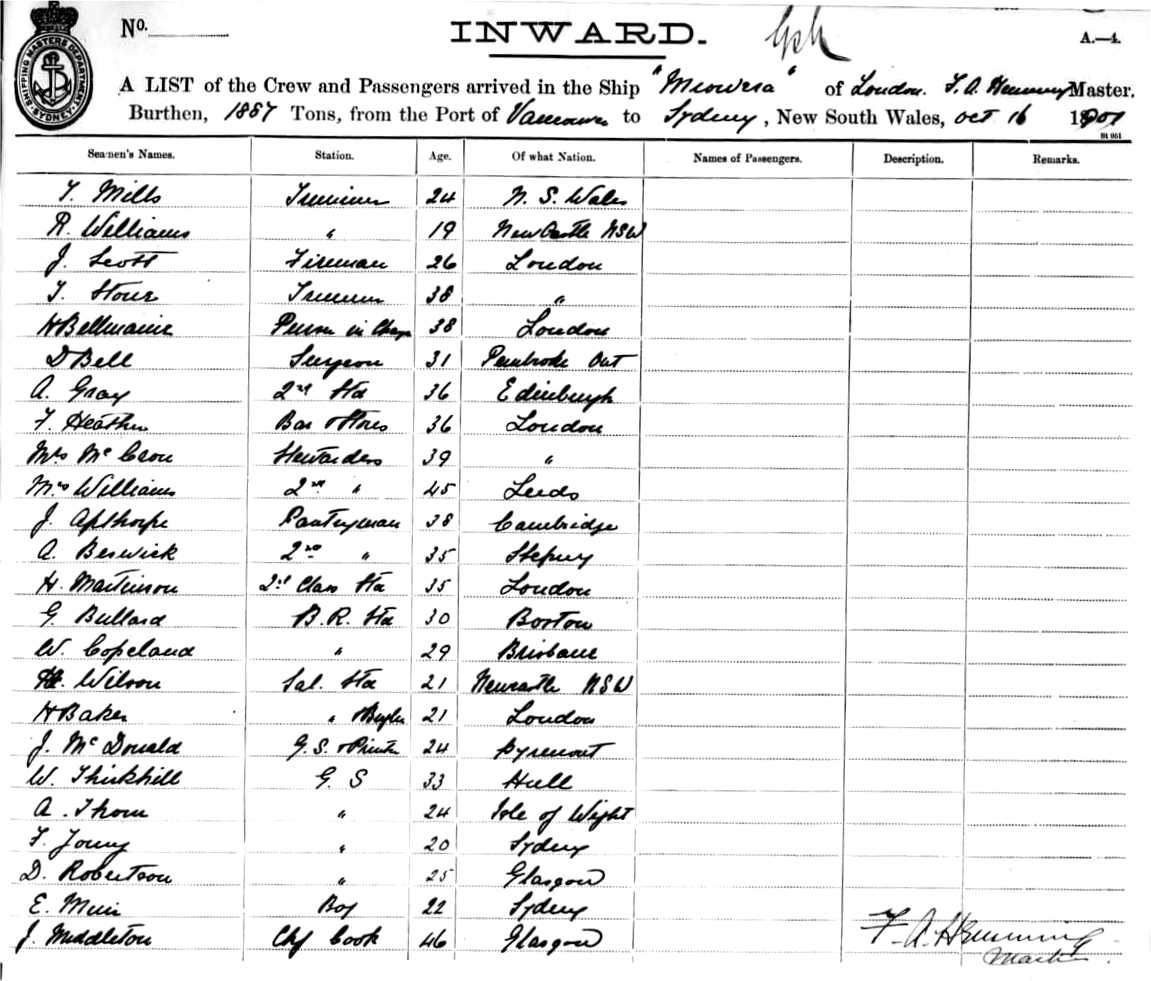 No. INWARD. A.—4.
SHIPPING MASTERS DEPARTMENT. SYDNEY.
A LIST of the Crew and Passengers arrived in the Ship "Miowera" of London. F. A. Hemming Master,
Burthen, 1887 Tons, from the Port of Vancouver to Sydney, New South Wales, Oct 16 1901
Seamen's Names. Station. Age. Of what Nation. Names of Passengers. Description. Remarks.
T. Mills Trimmer 24 N. S. Wales
R. Williams " 19 NewCastle NSW
J. Scott Fireman 26 London
T. Trimmer 38 "
H Bellmaine Person in Charge 38 London
D Bell Surgeon 31 Pembroke Ont
A. Gray 2nd Std 36 Edinburgh
F. Heather Bar & Stores 36 London
Mrs McCron Stewardess 39 "
Mrs Williams 2nd " 45 Leeds
J. Apthorpe Pantryman 38 Cambridge
A. Berwick 2nd " 35 Stepney
H. Martinson 2nd Class Std 35 London
G. Bullard B.R. Std 30 Boston
W. Copeland " 29 Brisbane
H. Wilson Sal. Std 21 Newcastle NSW
H Baker " & Bugler 21 London
J. McDonald G.S. & Printer 24 Pyrmont
W. Thirkhill G. S 33 Hull
A. Thom " 24 Isle of Wight
F. Young " 20 Sydney
D. Robertson " 25 Glasgow
E. Muir Boy 22 Sydney
J. Middleton Chf Cook 46 Glasgow
F. A. Hemming
Master.